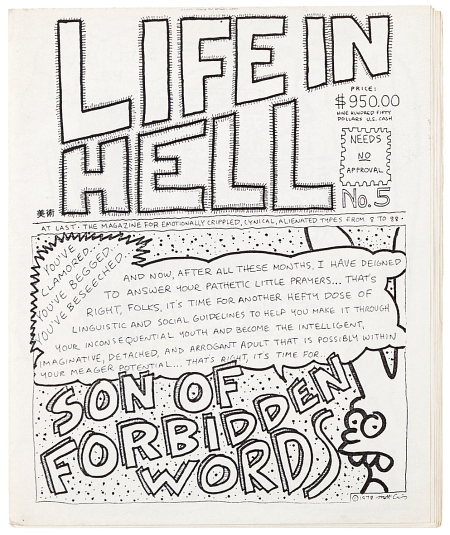 LIFE IN
HELL
PRICE:
$950.00
NINE HUNDRED FIFTY
DOLLARS U.S. CASH
NEEDS
NO
APPROVAL
No. 5
美術
AT LAST · THE MAGAZINE FOR EMOTIONALLY CRIPPLED, CYNICAL, ALIENATED TYPES FROM 8 TO 88 ·
YOU'VE
CLAMORED...
YOU'VE BEGGED...
YOU'VE BESEECHED...
AND NOW, AFTER ALL THESE MONTHS, I HAVE DEIGNED
TO ANSWER YOUR PATHETIC LITTLE PRAYERS... THAT'S
RIGHT, FOLKS, IT'S TIME FOR ANOTHER HEFTY DOSE OF
LINGUISTIC AND SOCIAL GUIDELINES TO HELP YOU MAKE IT THROUGH
YOUR INCONSEQUENTIAL YOUTH AND BECOME THE INTELLIGENT,
IMAGINATIVE, DETACHED, AND ARROGANT ADULT THAT IS POSSIBLY WITHIN
YOUR MEAGER POTENTIAL... THAT'S RIGHT, IT'S TIME FOR...
SON OF
FORBIDDEN
WORDS
©1978